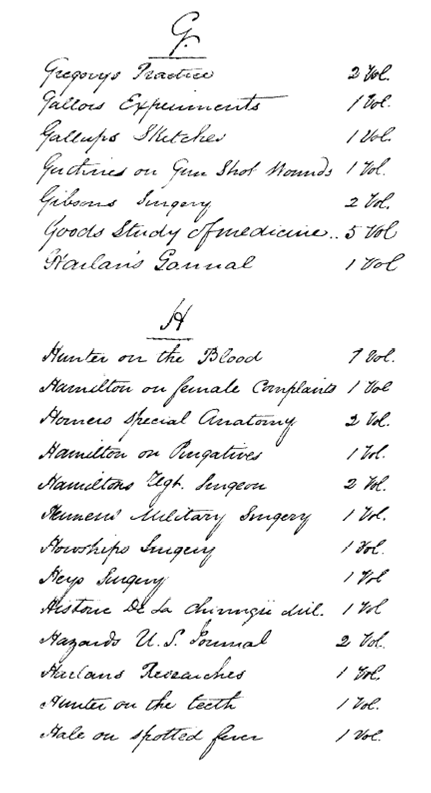 G.
Gregorys Practice 2 Vol.
Gallois Experiments 1 Vol.
Gallups Sketches 1 Vol.
Guthries on Gun Shot Wounds 1 Vol.
Gibsons Surgery 2 Vol.
Goods Study of medicine.. 5 Vol
Harlan's Gannal 1 Vol
H
Hunter on the Blood 1 Vol.
Hamilton on female Complaints 1 Vol
Horners special Anatomy 2 Vol.
Hamilton on Purgatives 1 Vol.
Hamiltons Regt. Surgeon 2 Vol.
Military Surgery 1 Vol.
Howships Surgery 1 Vol.
Heys Surgery 1 Vol
Histoire De La Chirurgie 1 Vol
Hazards U. S. Journal 2 Vol.
Harlans Researches 1 Vol.
Hunter on the teeth 1 Vol.
Hale on spotted fever 1 Vol.